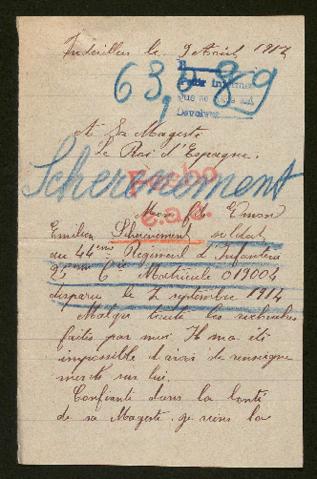 Indevillers le 9 Avril 1917
63,989
A Sa Majeste
Le Roi d'Espagne.
Scherenement
Fecho
Mon fils Edmond
Emilien Scherenement soldat
au 44eme Regiment d'Infanterie
2eme Cie Matricule 019004
disparu le 7 septembre 1914
Malgre toute les recherches
faites par moi Il m'a été
impossible d'avoir de renseigne
ments sur lui.
Confiante dans la bonté
de sa Majeste je viens la